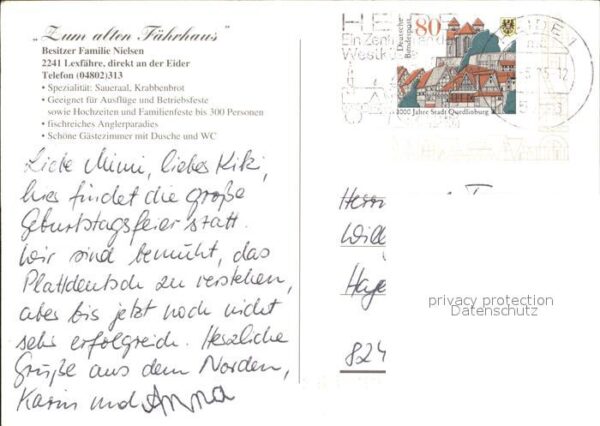 „Zum alten Fährhaus“
Besitzer Familie Nielsen
2241 Lexfähre, direkt an der Eider
Telefon (04802)313
• Spezialität: Saueraal, Krabbenbrot
• Geeignet für Ausflüge und Betriebsfeste
sowie Hochzeiten und Familienfeste bis 300 Personen
• fischreiches Anglerparadies
• Schöne Gästezimmer mit Dusche und WC
Liebe Mimi, lieber Kiki,
hier findet die große
Geburtstagsfeier statt.
Wir sind bemüht, das
Plattdeutsch zu verstehen,
aber bis jetzt noch nicht
sehr erfolgreich. Herzliche
Grüße aus dem Norden,
Karin und Anna
Deutsche
Bundespost
80
1000 Jahre Stadt Quedlinburg
Ein Zent
Westkü
HEIDE 1
Herrn
Will
Hage
824
privacy protection
Datenschutz